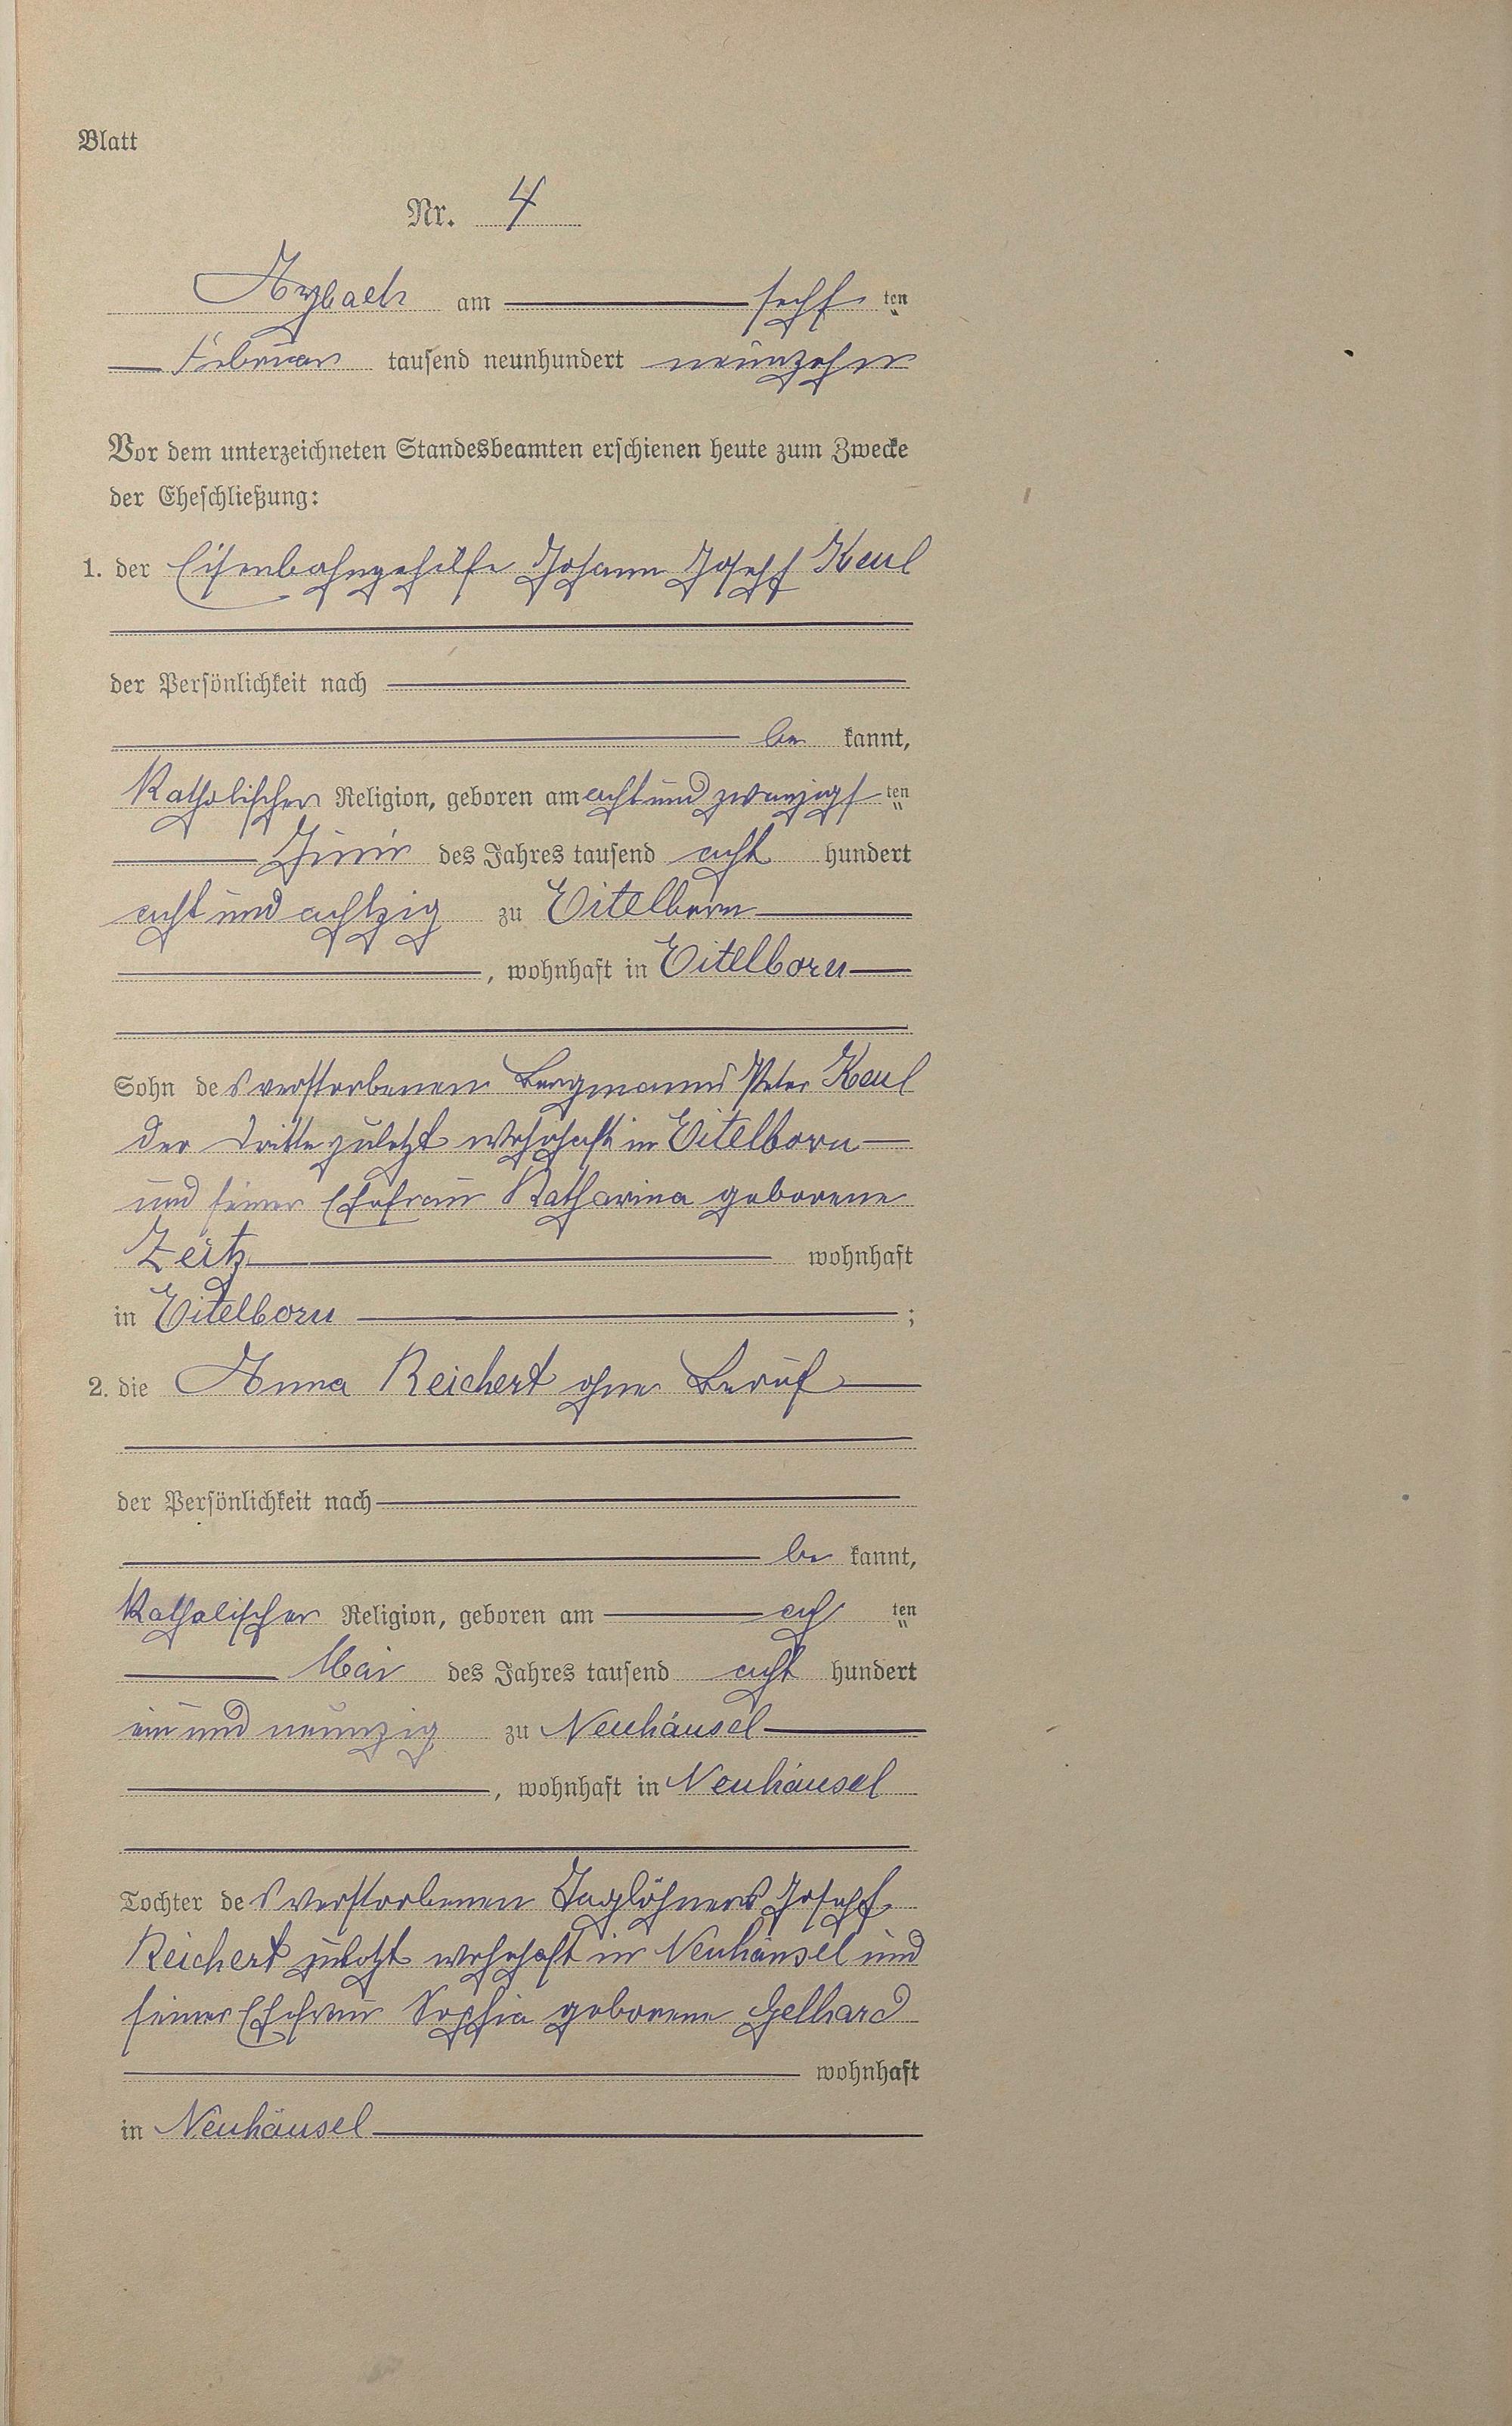 Blatt
Nr. 4
Arzbach am sechs ten
Februar tausend neunhundert neunzehn
Vor dem unterzeichneten Standesbeamten erschienen heute zum Zwecke
der Eheschließung:
1. der Eisenbahngehilfe Johann Joseph Keul
der Persönlichkeit nach
be kannt,
Katholischer Religion, geboren am achtundzwanzigs ten
Juni des Jahres tausend acht hundert
acht und achtzig zu Eitelborn
, wohnhaft in Eitelborn
Sohn des verstorbenen Bergmanns Peter Keul
der Dritte zuletzt wohnhaft in Eitelborn
und seiner Ehefrau Katharina geborene
Zeitz wohnhaft
in Eitelborn ;
2. die Anna Reichert ohne Beruf
der Persönlichkeit nach
be kannt,
Katholischer Religion, geboren am ach ten
Mai des Jahres tausend acht hundert
ein und neunzig zu Neuhäusel
, wohnhaft in Neuhäusel
Tochter des verstorbenen Taglöhners Joseph
Reichert zuletzt wohnhaft in Neuhäusel und
seiner Ehefrau Sophia geborene Gelhard
wohnhaft
in Neuhäusel